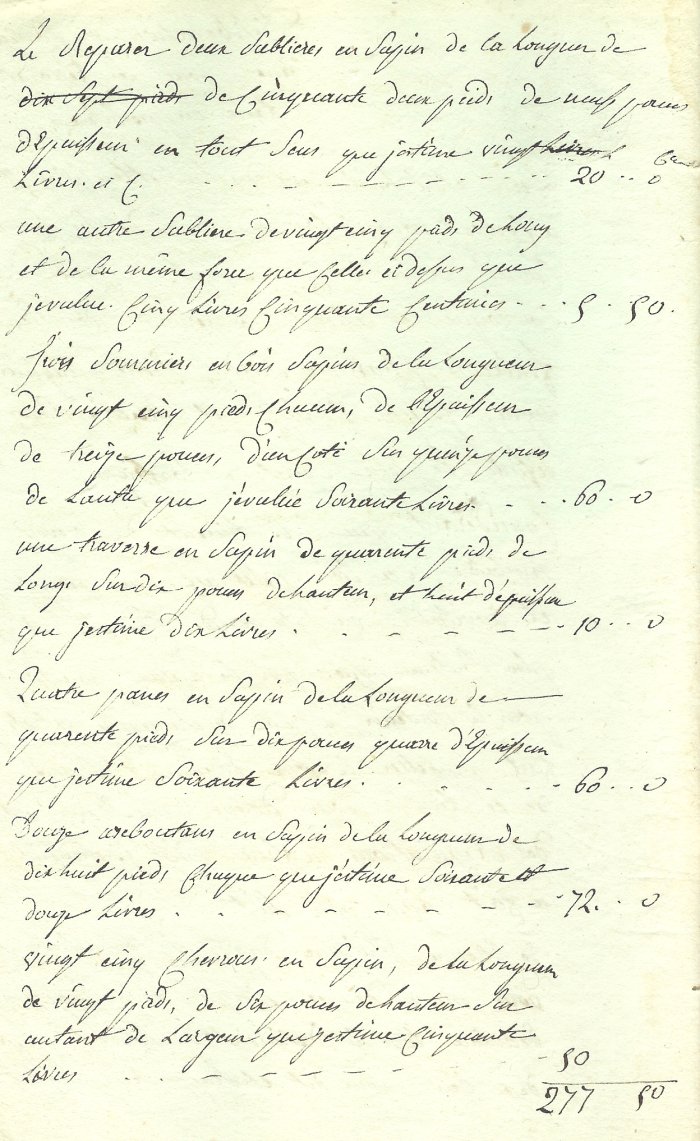 Le Reparer deux Sablieres en Sapin de la Longueur de
dix Sept pieds de Cinquante deux pieds de neuf pouces
d'Epaisseur en tout Sens que j'estime vingt Livres
Livres et C. 20 0
une autre Sabliere de vingt cinq pieds de Long
et de la même force que Celles ci dessus que
j'evalue Cinq Livres Cinquante Centimes 5 50.
Trois Sommiers en bois Sapins de la Longueur
de vingt cinq pieds Chacun, de l'Epaisseur
de treize pouces, d'un Coté Sur quinze pouces
de Lautre que j'évalue Soixante Livres 60 0
une traverse en Sapin de quarente pieds de
Long Sur dix pouces de hauteur, et huit d'épaisseur
que j'estime dix Livres 10 0
Quatre panes en Sapin de la Longueur de
quarente pieds Sur dix pouces quarre d'Epaisseur
que j'estime Soixante Livres 60 0
Douze areboutans en Sapin de la Longueur de
dix huit pieds Chaque que j'éstime Soixante et
douze Livres 72. 0
vingt cinq Chevrons en Sapin, de la Longueur
de vingt pieds, de Six pouces de hauteur Sur
autant de Largeur que j'estime Cinquante
Livres 50
277 50